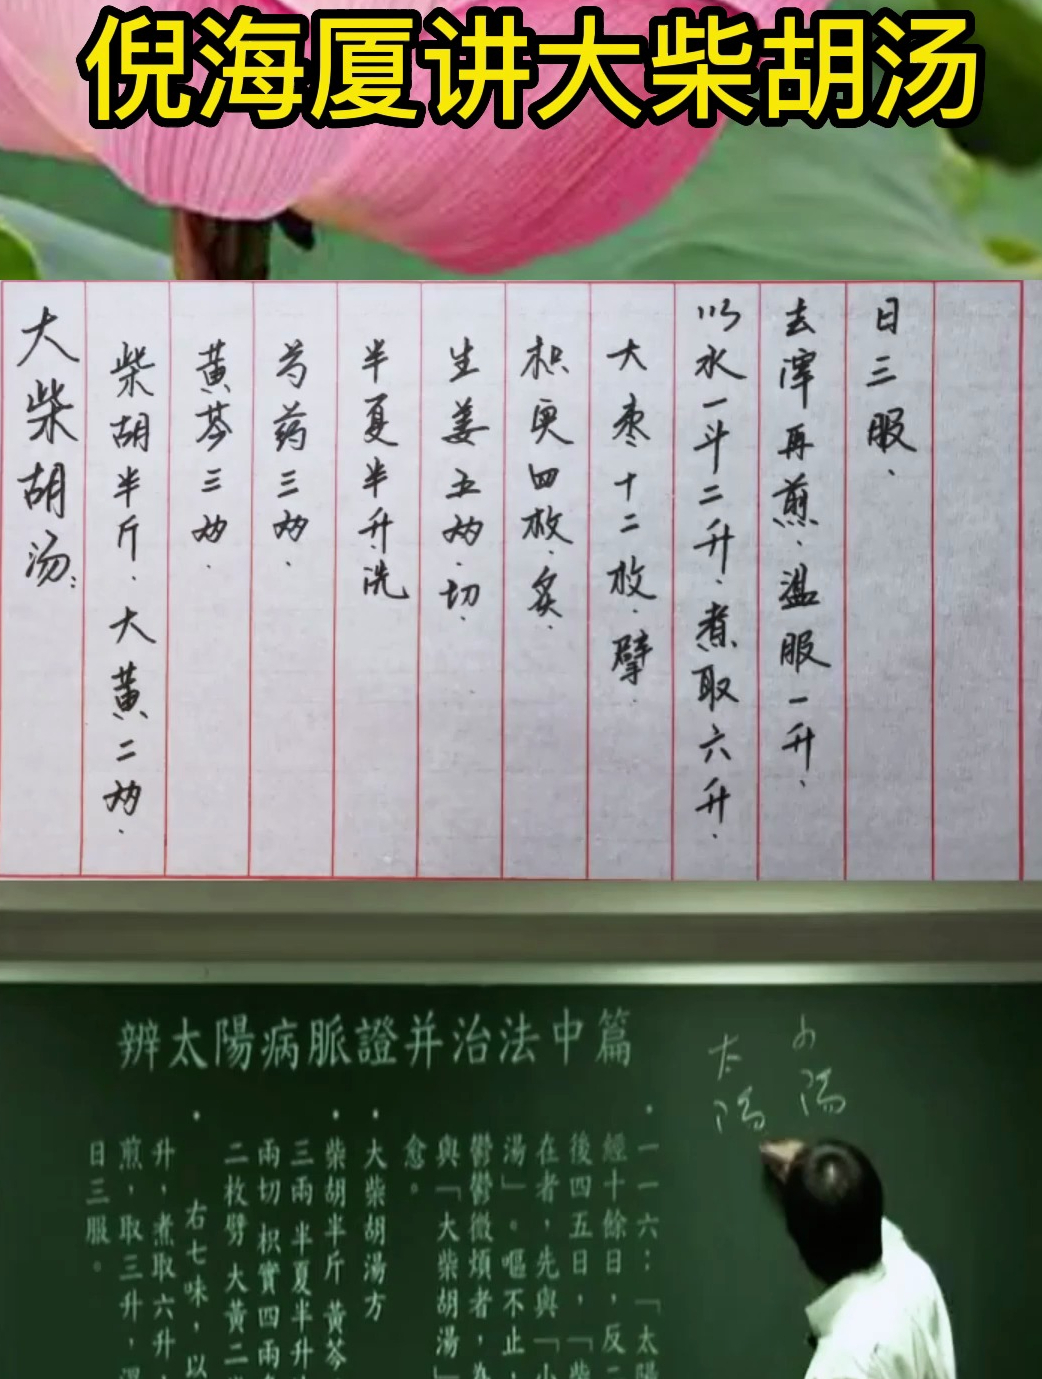 倪海厦讲大柴胡汤
大柴胡汤：
柴胡半斤．大黃二两．
黃芩三两．
芍药三两．
半夏半升．洗
生姜五两．切．
枳实四枚．炙．
大枣十二枚．擘．
以水一斗二升．煮取六升．
去滓再煎．溫服一升．
日三服．
辨太陽病脈證并治法中篇
·一一六：「太陽
經十餘日，反二
後四五日，「柴
在者，先與「小
湯」。嘔不止，
鬱鬱微煩者，為
與「大柴胡湯」
愈。
·大柴胡湯方
·柴胡半斤 黃芩
三兩 半夏半升
兩切 枳實四兩
二枚劈 大黃二
·右七味，以
升，煮取六升，
煎，取三升，溫
日三服。
少陽
太陽